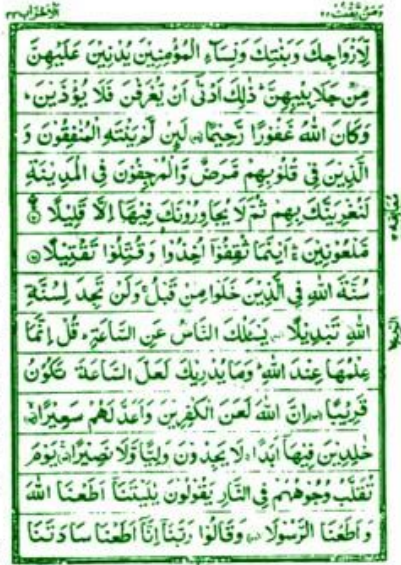 ومن يقنت ٢٢
الاحزاب ٣٣
لِّاَزْوَاجِكَ وَبَنٰتِكَ وَنِسَآءِ الْمُؤْمِنِيْنَ يُدْنِيْنَ عَلَيْهِنَّ
مِنْ جَلَابِيْبِهِنَّ ؕ ذٰلِكَ اَدْنٰٓى اَنْ يُّعْرَفْنَ فَلَا يُؤْذَيْنَ ؕ
وَكَانَ اللّٰهُ غَفُوْرًا رَّحِيْمًا لَئِنْ لَّمْ يَنْتَهِ الْمُنٰفِقُوْنَ وَ
الَّذِيْنَ فِيْ قُلُوْبِهِمْ مَّرَضٌ وَّالْمُرْجِفُوْنَ فِى الْمَدِيْنَةِ
لَنُغْرِيَنَّكَ بِهِمْ ثُمَّ لَا يُجَاوِرُوْنَكَ فِيْهَآ اِلَّا قَلِيْلًا
مَّلْعُوْنِيْنَ ۛۚ اَيْنَمَا ثُقِفُوْٓا اُخِذُوْا وَقُتِّلُوْا تَقْتِيْلًا
سُنَّةَ اللّٰهِ فِى الَّذِيْنَ خَلَوْا مِنْ قَبْلُ ۚ وَلَنْ تَجِدَ لِسُنَّةِ
اللّٰهِ تَبْدِيْلًا يَسْـَٔلُكَ النَّاسُ عَنِ السَّاعَةِ ؕ قُلْ اِنَّمَا
عِلْمُهَا عِنْدَ اللّٰهِ ؕ وَمَا يُدْرِيْكَ لَعَلَّ السَّاعَةَ تَكُوْنُ
قَرِيْبًا اِنَّ اللّٰهَ لَعَنَ الْكٰفِرِيْنَ وَاَعَدَّ لَهُمْ سَعِيْرًا
خٰلِدِيْنَ فِيْهَآ اَبَدًا ۚ لَا يَجِدُوْنَ وَلِيًّا وَّلَا نَصِيْرًا يَوْمَ
تُقَلَّبُ وُجُوْهُهُمْ فِى النَّارِ يَقُوْلُوْنَ يٰلَيْتَنَآ اَطَعْنَا اللّٰهَ
وَاَطَعْنَا الرَّسُوْلَا وَقَالُوْا رَبَّنَآ اِنَّآ اَطَعْنَا سَادَتَنَا